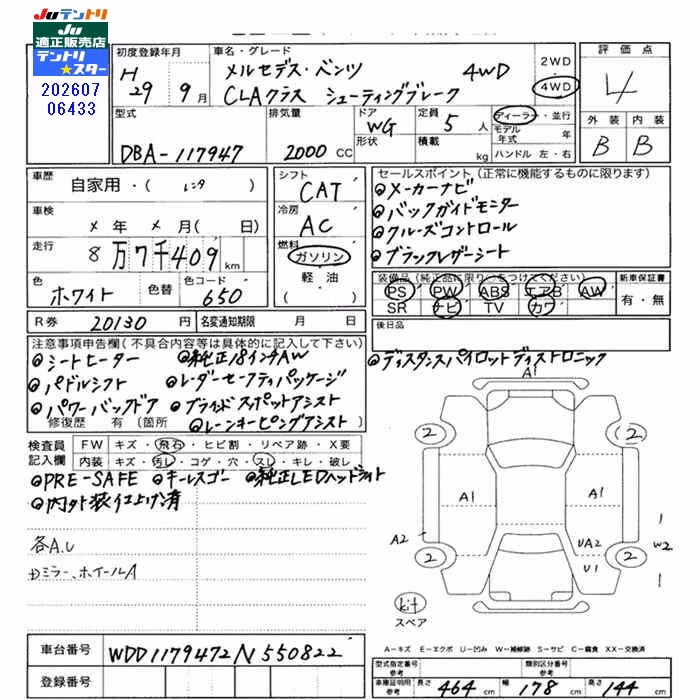 Juテントリ
Ju
適正販売店
テントリ
★スター
202607
06433
初度登録年月
H
29 9月
車名・グレード
メルセデス・ベンツ 4WD
CLAクラス シューティングブレーク
2WD
4WD
評価点
4
外装 内装
B B
型式
DBA-117947
排気量
2000 CC
ドア
形状
WG
定員 5 人
積載 kg
ディーラー・並行
モデル年式 年
ハンドル 左・右
車歴
自家用・( レンタ )
車検
×年×月( 日)
走行
8万7千409km
色
ホワイト
色替
色コード
650
シフト
CAT
冷房
AC
燃料
ガソリン
軽・油
( )
セールスポイント(正常に機能するものに限ります)
◎メーカーナビ
◎バックガイドモニター
◎クルーズコントロール
◎ブラックレザーシート
装備品(純正品に限り○をつけてください)
PS PW ABS エアB AW
SR ナビ TV カワ
新車保証書
有・無
R券 20130円
名変通知期限 月 日
後日品
注意事項申告欄(不具合内容等は具体的に記入して下さい)
◎シートヒーター ◎純正18インチAW
◎パドルシフト ◎レーダーセーフティパッケージ
◎パワーバックドア ◎ブラインドスポットアシスト
修復歴 有(箇所 ◎レーンキーピングアシスト)
◎ディスタンスパイロットディストロニック
検査員
記入欄
FW キズ・飛石・ヒビ割・リペア跡・X要
内装 キズ・汚し・コゲ・穴・スレ・キレ・破レ
◎PRE-SAFE ◎キーレスゴー ◎純正LEDヘッドライト
◎内外装仕上げ済
各A.U
ミラー、ホイールA
A1
2 2
A1 A1
A2 UA2
U1
2 2
W2
kit
スペア
A-キズ E-エクボ U-凹み W-補修跡 S-サビ C-腐食 XX-交換済
車台番号 WDD1179472N550822
登録番号
型式指定番号
参考
類別区分番号
参考
車庫証明用
参考
長さ 464 cm 幅 178 cm 高さ 144 cm